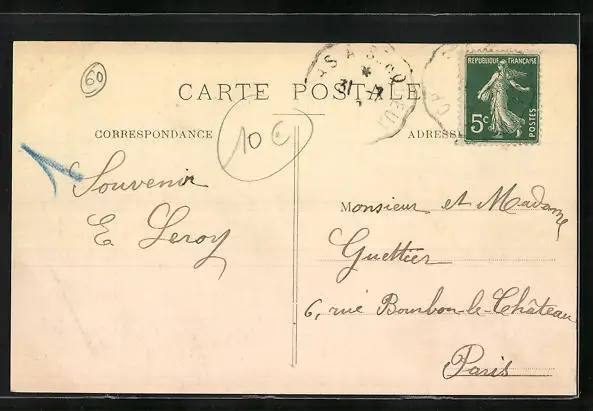 60
CARTE POSTALE
RÉPUBLIQUE FRANÇAISE
5c
POSTES
CORRESPONDANCE
10 €
ADRESSE
Souvenir
E Leroy
Monsieur et Madame
Guettier
6, rue Bourbon-le-Château
Paris